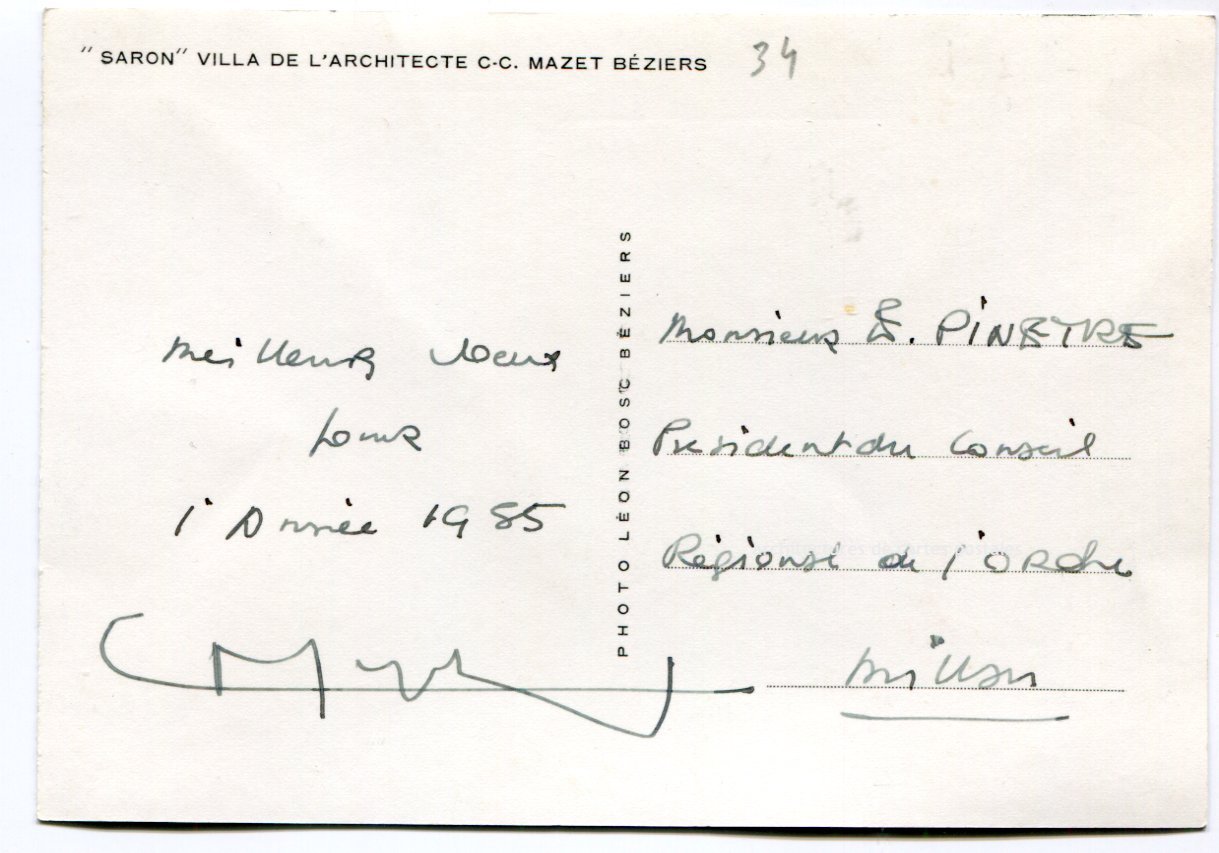 "SARON" VILLA DE L'ARCHITECTE C-C. MAZET BÉZIERS
34
Meilleurs Voeux
pour
l'Année 1985
PHOTO LÉON BOSC BÉZIERS
Monsieur E. PINEYRE
Président du Conseil
Régional de l'Ordre